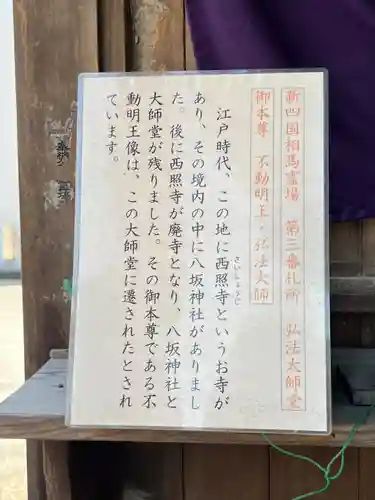 新四国相馬霊場 第三番札所 弘法大師堂
御本尊 不動明王・弘法大師
江戸時代、この地に西照寺というお寺が
さいしょうじ
あり、その境内の中に八坂神社がありまし
た。後に西照寺が廃寺となり、八坂神社と
大師堂が残りました。その御本尊である不
動明王像は、この大師堂に遷されたとされ
ています。